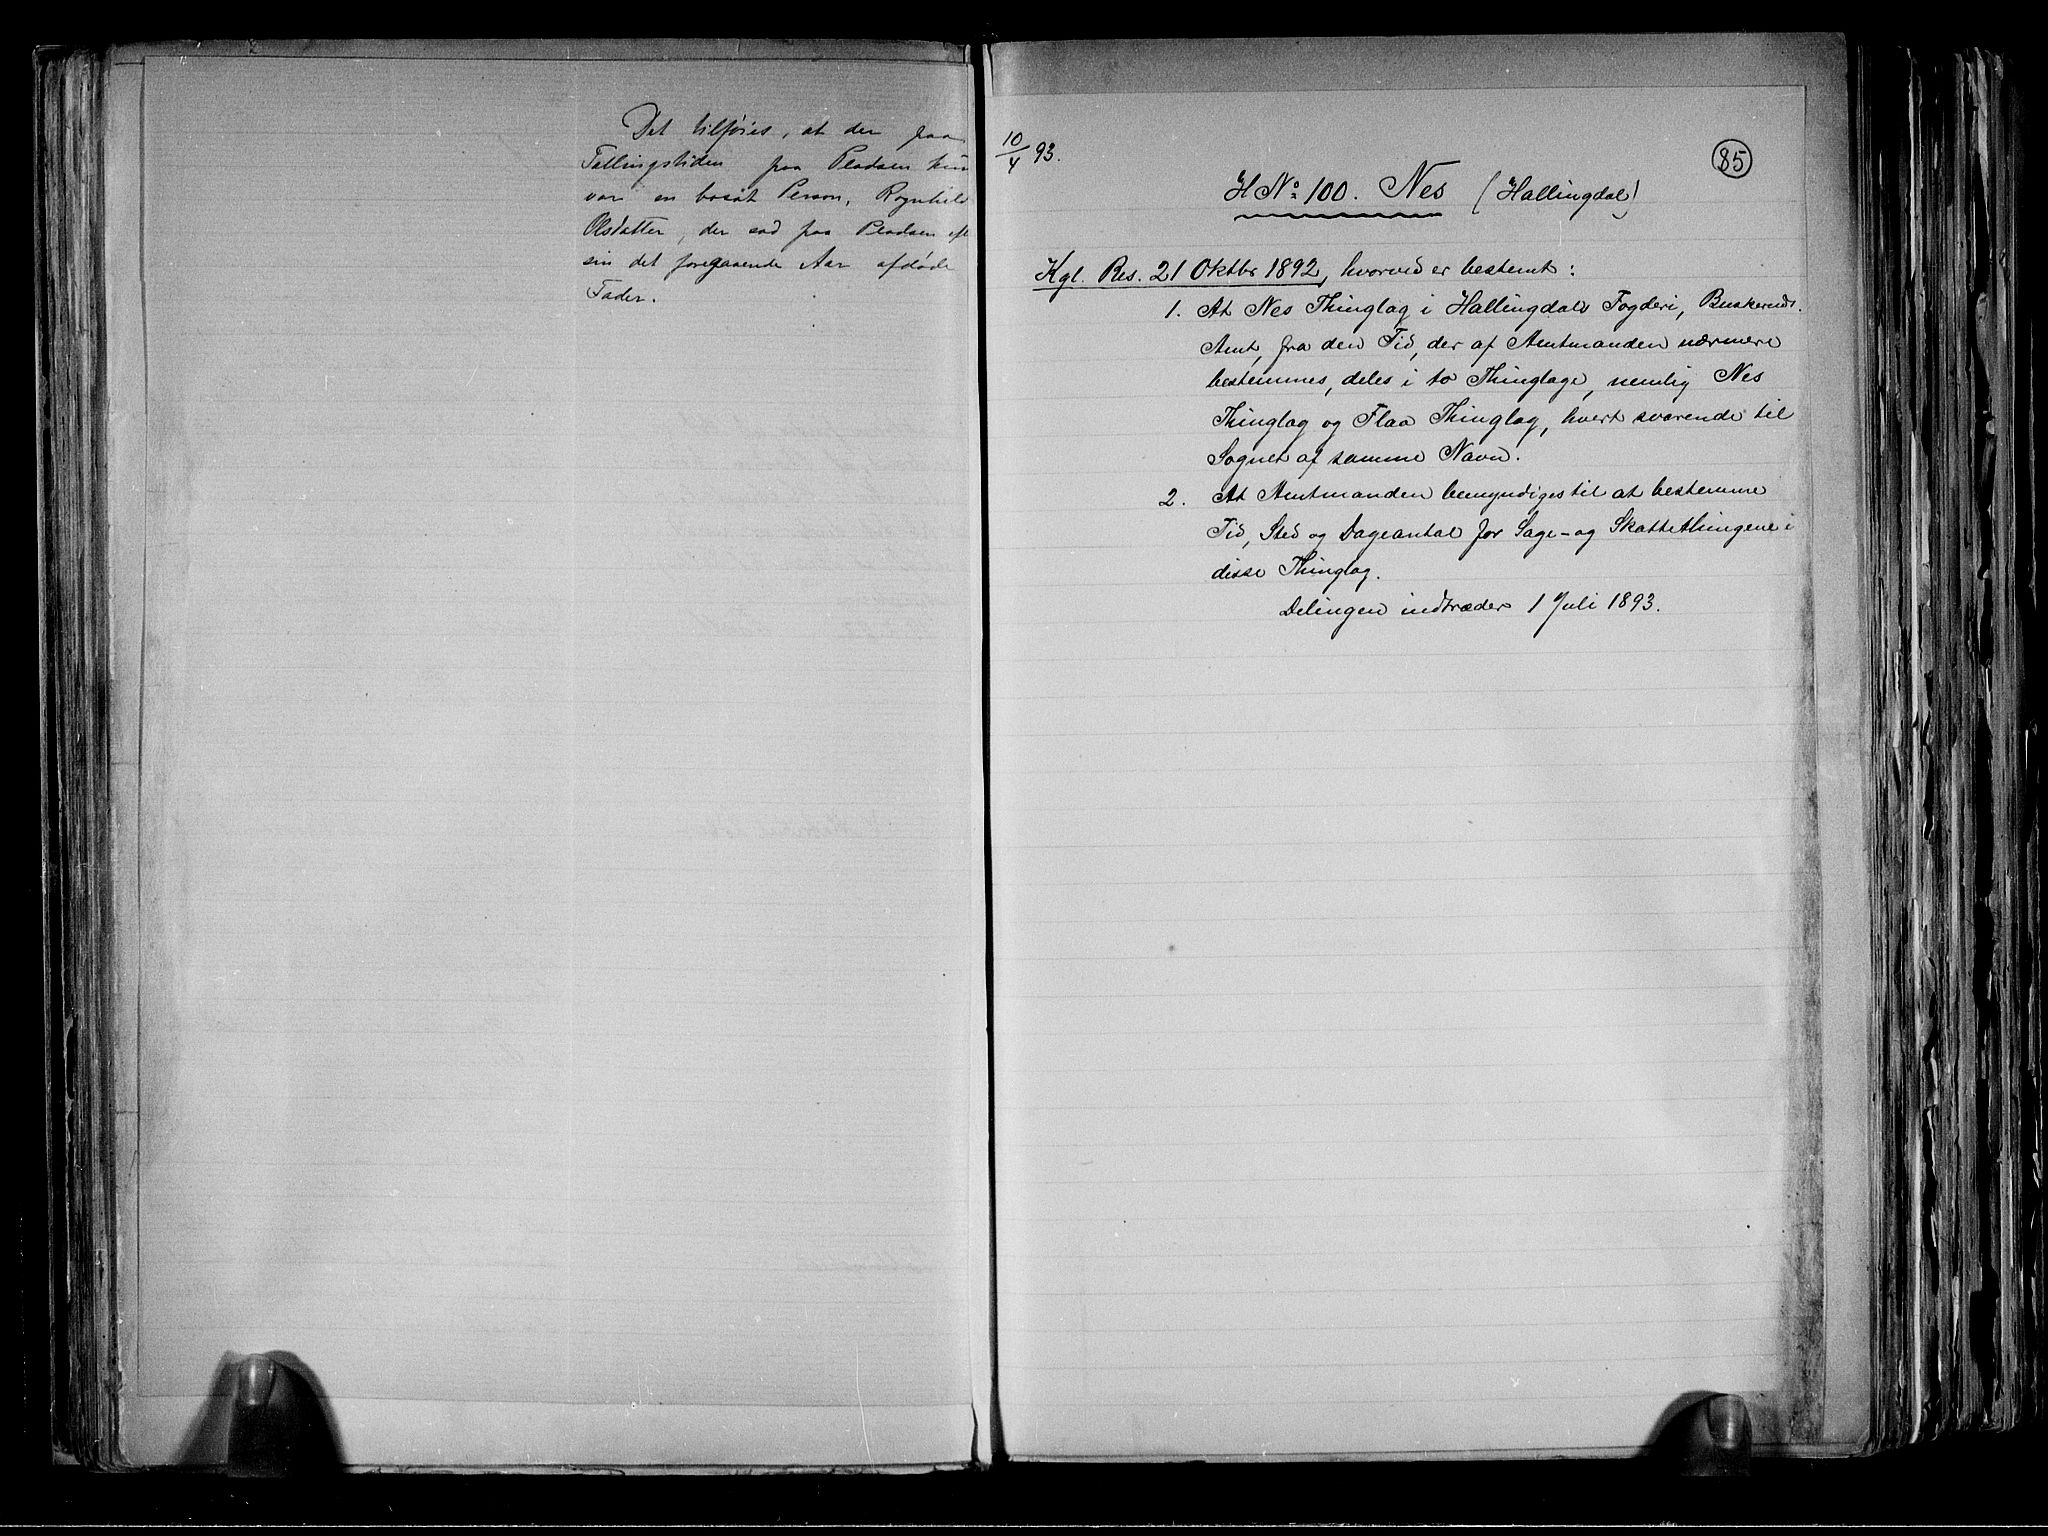 Det tilføies, at der paa
Tællingstiden paa Pladsen kun
var en bosat Person, Ragnhild
Olsdatter, der sad paa Pladsen eft
sin det foregaaende Aar afdøde
Fader.
10/4 93.
85
H № 100. Nes (Hallingdal)
Kgl. Res. 21 Oktbr 1892, hvorved er bestemt:
1. At Nes Thinglag i Hallingdals Fogderi, Buskeruds
Amt, fra den Tid, der af Amtmanden nærmere
bestemmes, deles i to Thinglage, nemlig Nes
Thinglag og Flaa Thinglag, hvert svarende til
Sognet af samme Navn.
2. At Amtmanden bemyndiges til at bestemme
Tid, Sted og Dageantal for Sage- og Skattethingene i
disse Thinglag.
Delingen indtræder 1 Juli 1893.